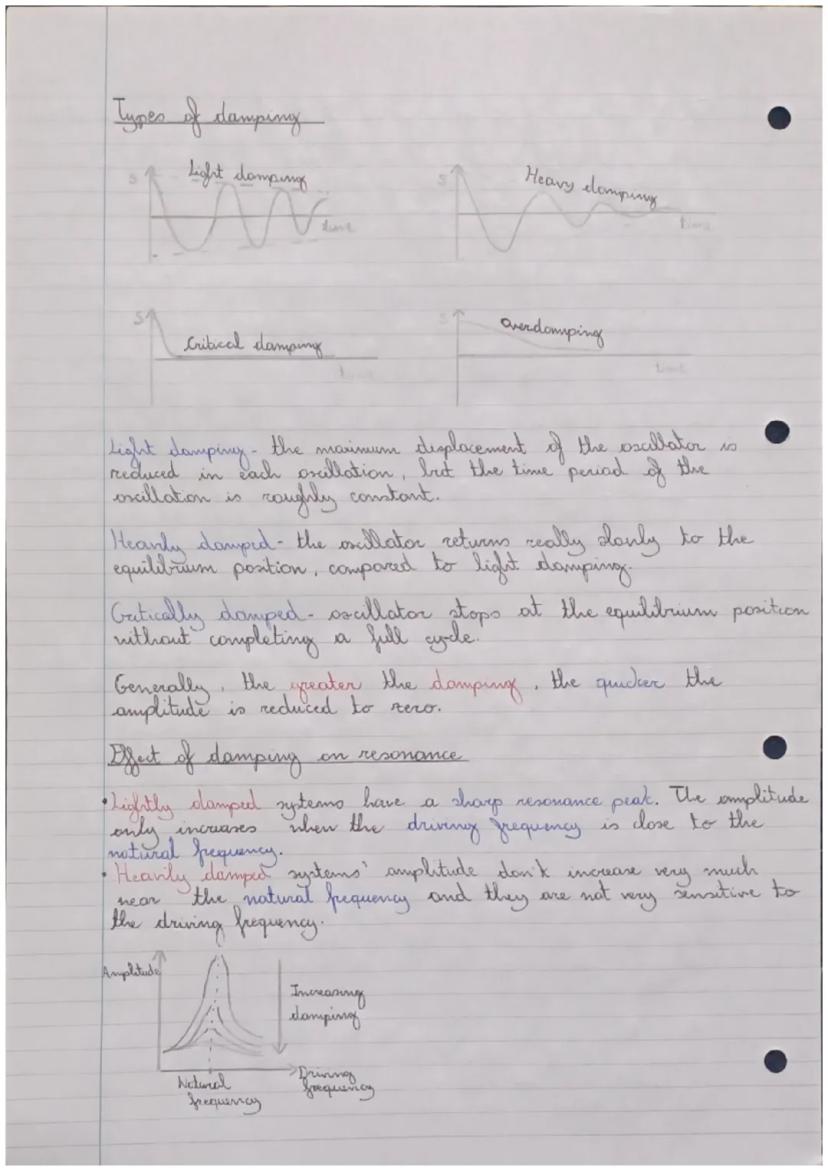 Types of damping
S Light damping
time
S Heavy damping
time
S Critical damping
time
S Overdamping
time
Light damping - the maximum displacement of the oscillator is
reduced in each oscillation, but the time period of the
oscillation is roughly constant.
Heavily damped - the oscillator returns really slowly to the
equilibrium position, compared to light damping.
Critically damped - oscillator stops at the equilibrium position
without completing a full cycle.
Generally, the greater the damping, the quicker the
amplitude is reduced to zero.
Effect of damping on resonance
• Lightly damped systems have a sharp resonance peak. The amplitude
only increases when the driving frequency is close to the
natural frequency.
• Heavily damped systems' amplitude don't increase very much
near the natural frequency and they are not very sensitive to
the driving frequency.
Amplitude
Increasing
damping
Natural
frequency
Driving
frequency